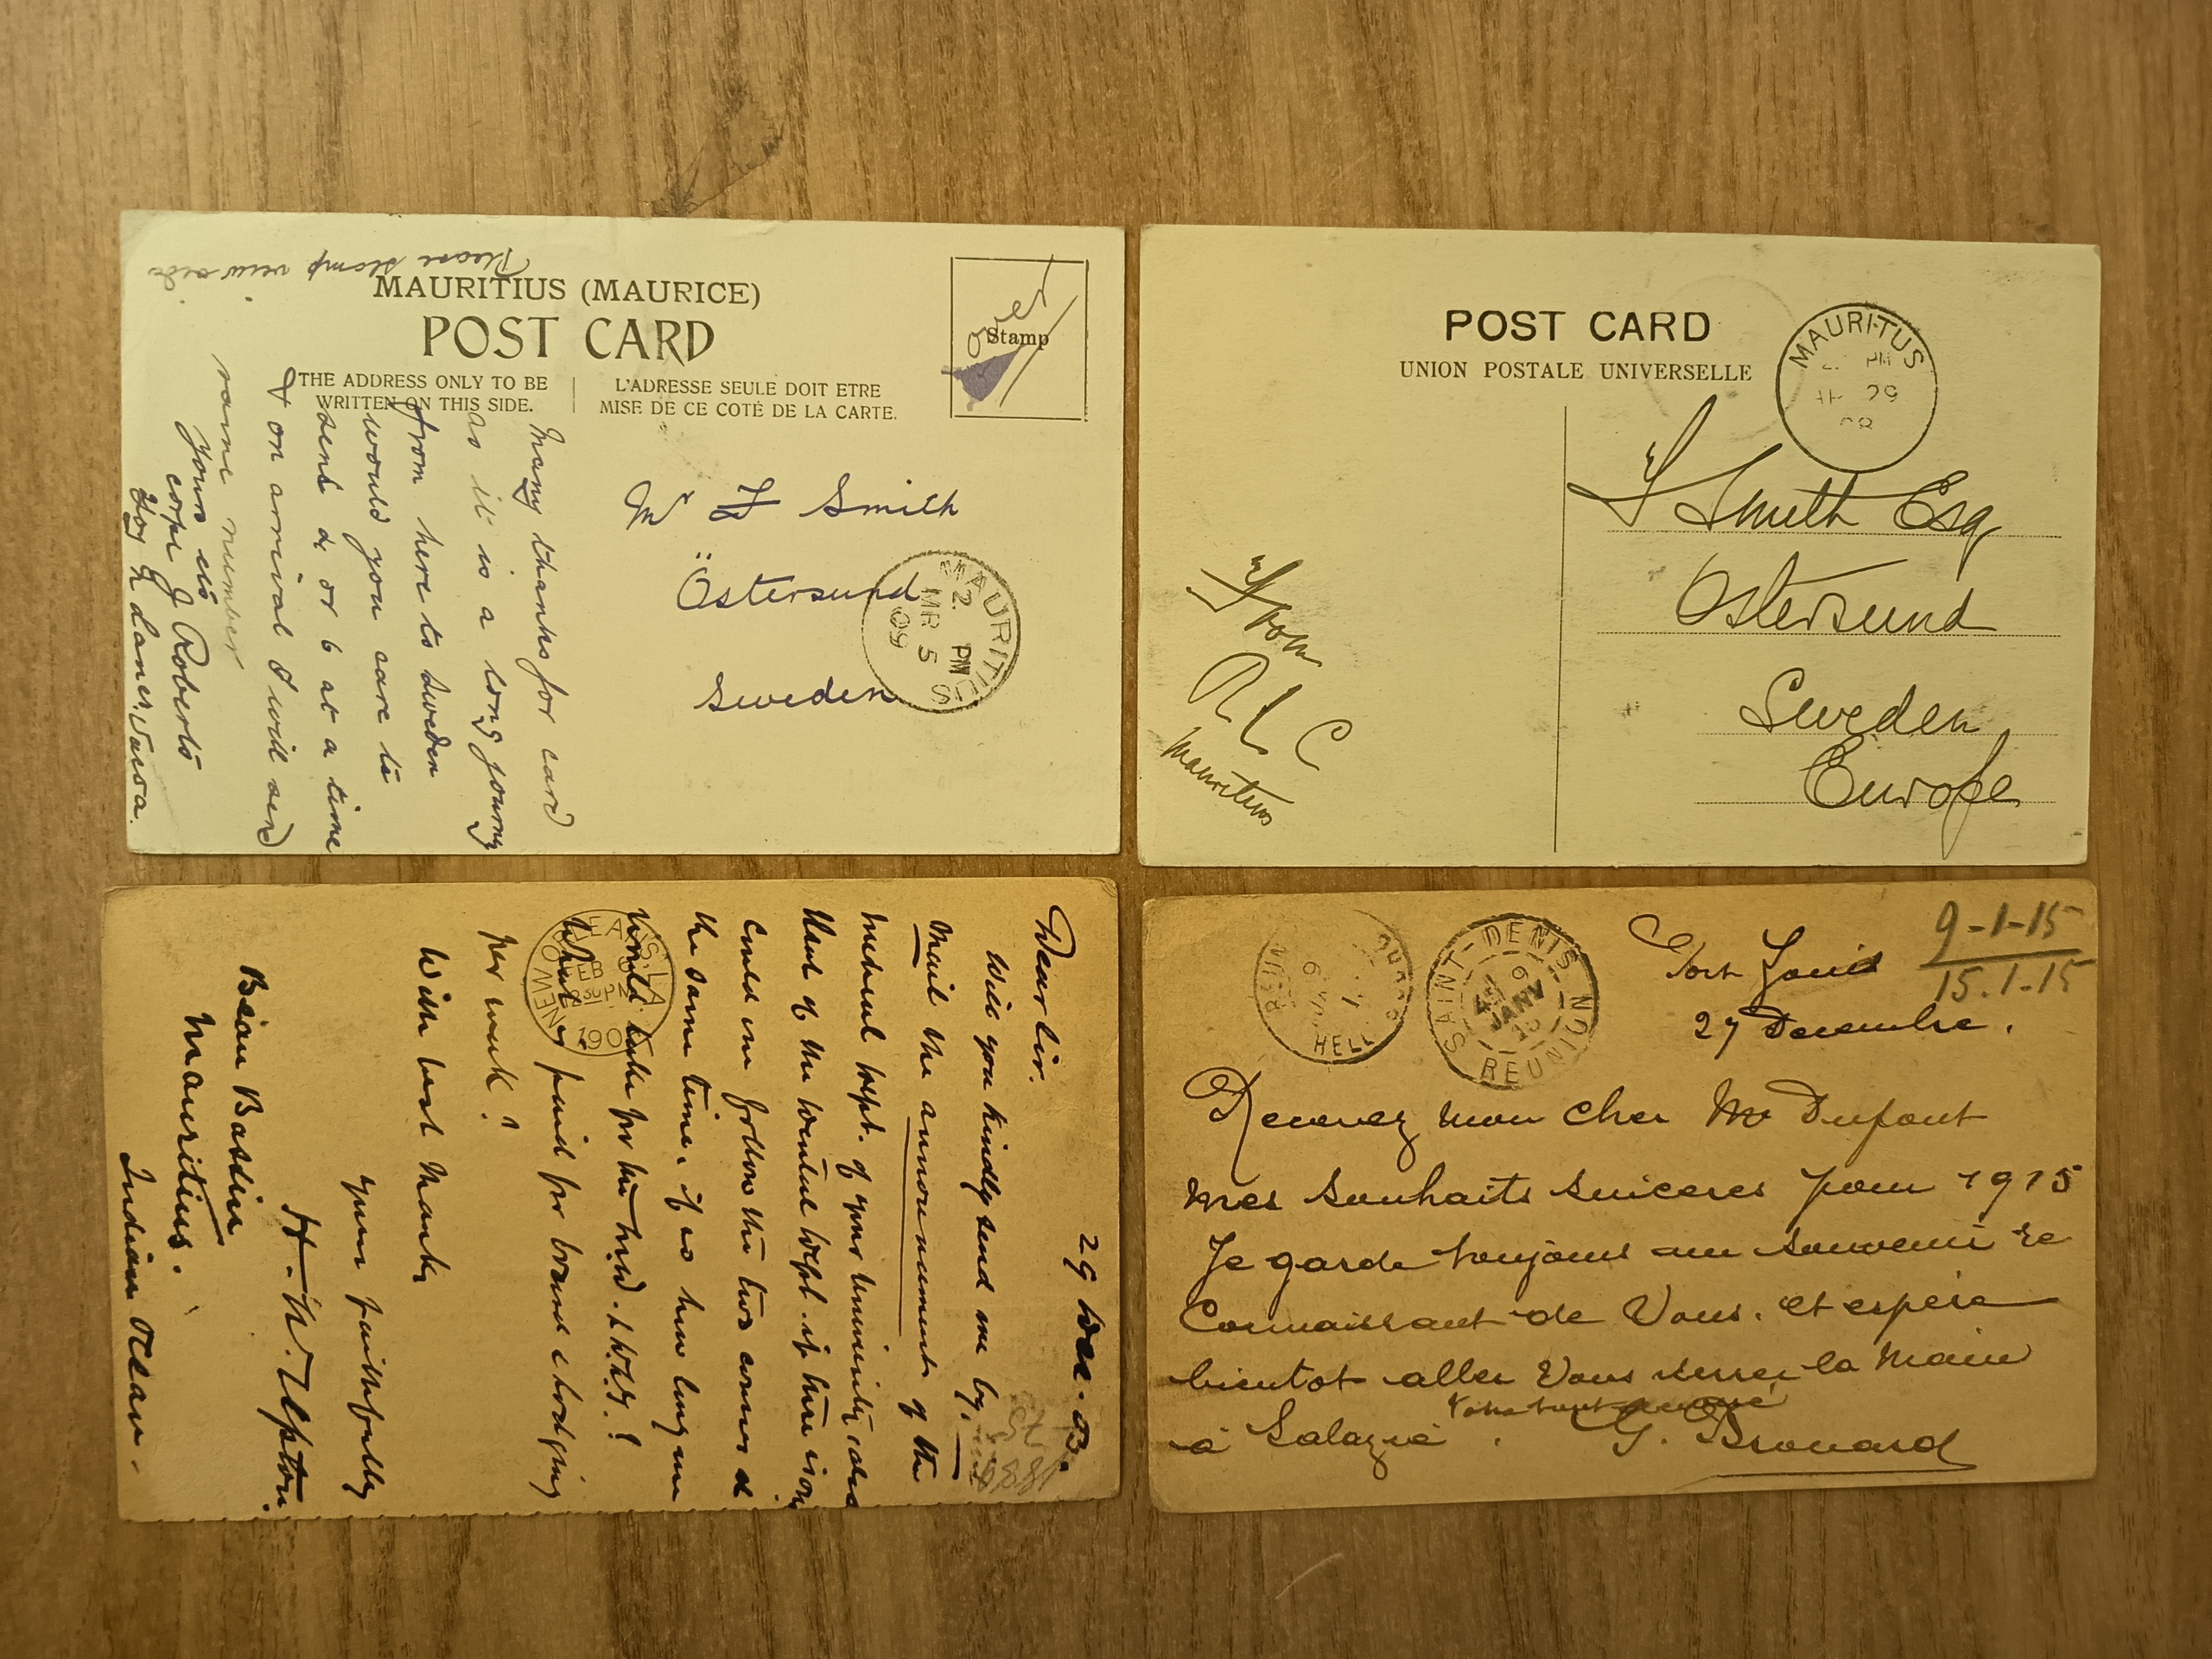 Please stamp view side
MAURITIUS (MAURICE)
POST CARD
THE ADDRESS ONLY TO BE
WRITTEN ON THIS SIDE.
L'ADRESSE SEULE DOIT ETRE
MISE DE CE COTÉ DE LA CARTE.
Stamp
over
Mr F Smith
Östersund
Sweden
MAURITIUS
2 PM
MR 5
09
Many thanks for card
as it is a long journey
from here to Sweden
would you care to
send 4 or 6 at a time
& on arrival I will send
same number
yours etc
corpl J Roberts
POST CARD
UNION POSTALE UNIVERSELLE
MAURITIUS
PM
29
08
F Smith Esq
Ostersund
Sweden
Europe
From
R L C
Mauritius
29 Dec. 03.
Dear Sir.
Will you kindly send me by
mail the announcement of the
medical dept. of your University, also
that of the dental dept. if there is any
Could one follow the two courses at
the same time, if so how long
would take for the
What paid for board & lodging
per week?
With best thanks
yours faithfully
H. N. Upton.
Beau Bassin
Mauritius.
Indian Ocean.
NEW ORLEANS, LA
FEB
230 PM
190
9-1-15
15.1-15
Port Louis
27 Decembre.
SAINT-DENIS
RÉUNION
6
JANV
15
HELL
Recevez mon cher Mr Dupont
mes souhaits sinceres pour 1915
Je garde toujours un souvenir re
Connaissant de Vous. et espère
bientot aller Vous serrer la Main
à Salazie.
G. Brouard